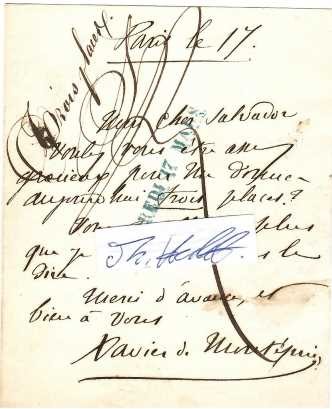 Paris le 17.
Trois places
Mon cher Salvador
Voulez vous être assez
gracieux pour me donner
aujourd'hui trois places?
plus
que je le
dire.
Merci d'avance, et
bien à vous
Xavier de Montépin
MARDI 17 MARS